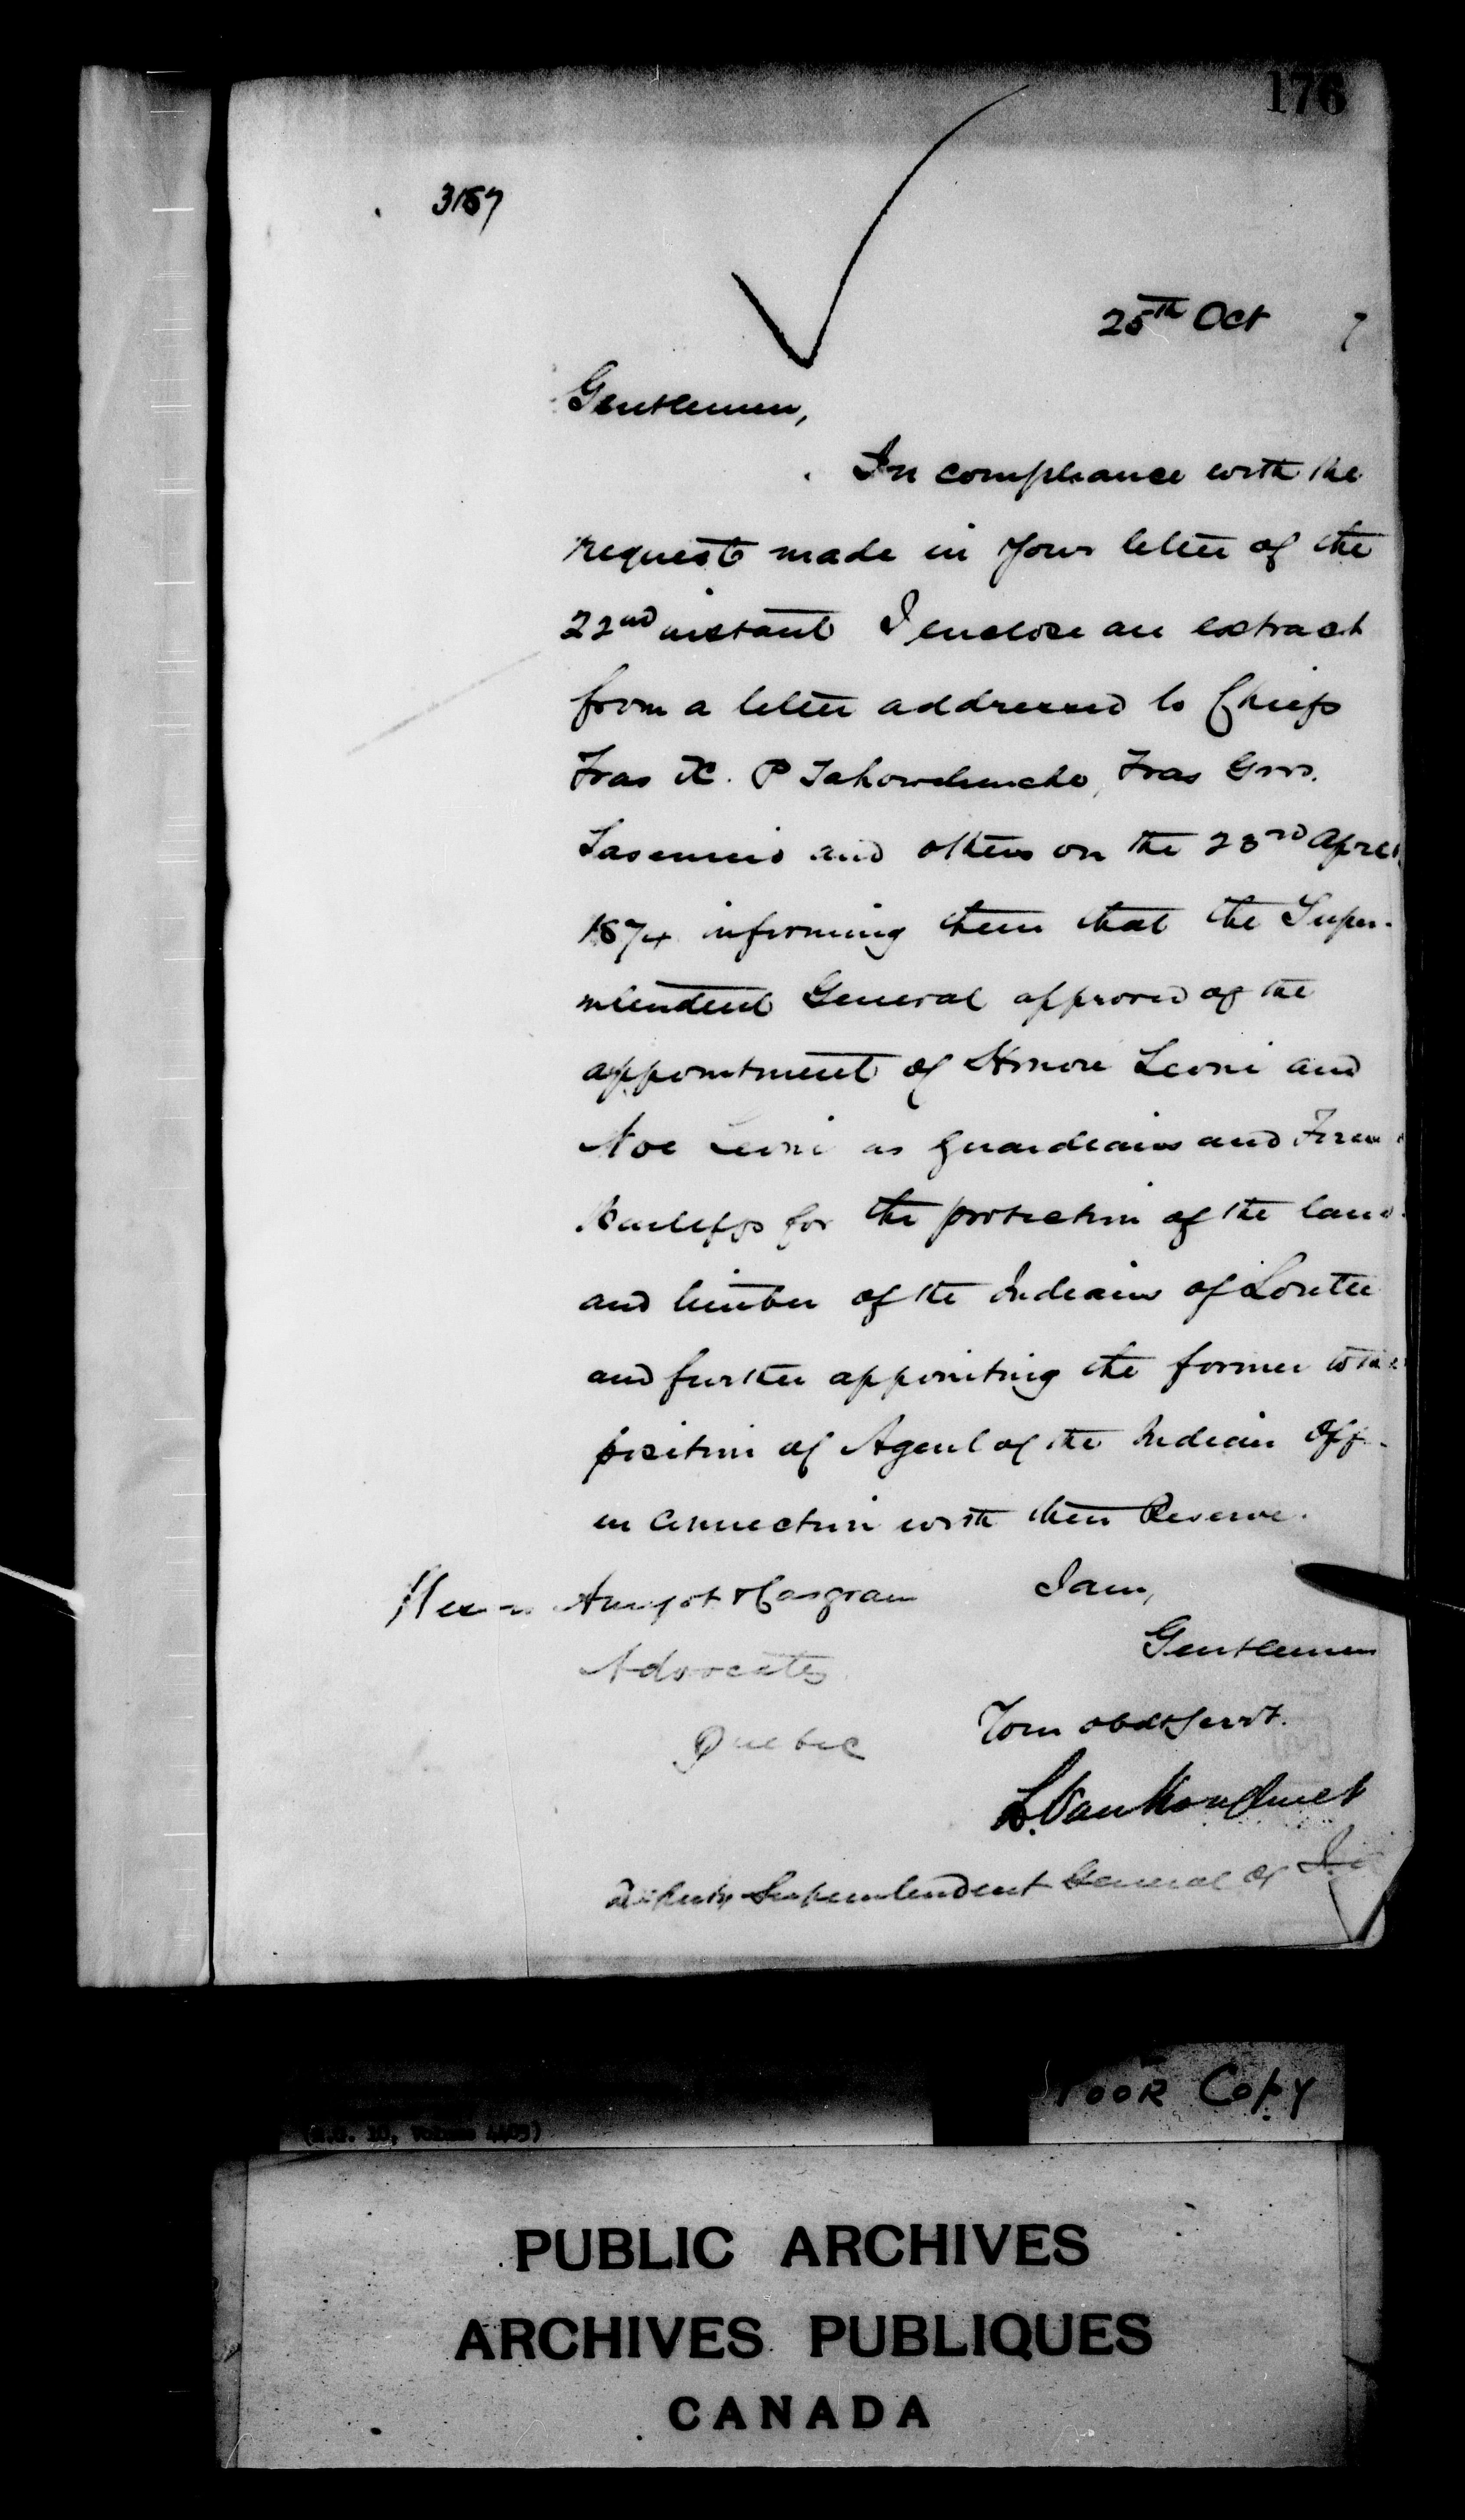 176
3157
25th Oct 7
Gentlemen,
In compliance with the
request made in your letter of the
22nd instant I enclose an extract
from a letter addressed to Chiefs
Fras X. P Tahourhenche, Fras Gros
and others on the 23rd April
1874 informing them that the Super-
intendent General approved of the
appointment of Honore Leoni and
Noe Leoni as guardians and
Bailiffs for the protection of the land
and timber of the Indians of Lorette
and further appointing the former to the
position of Agent of the Indian Off
in connection with their Reserve.
I am,
Gentlemen
Your obdt Servt.
L. VanKoughnet
Deputy Superintendent General of
Messrs Amyot & Casgrain
Advocates
Quebec
Poor Copy
(R.G. 10, Volume)
PUBLIC ARCHIVES
ARCHIVES PUBLIQUES
CANADA